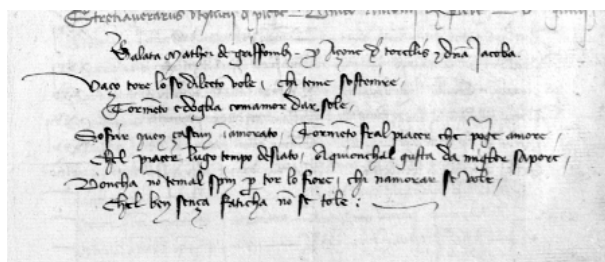 Balata Mathei de griffonib; p Açone d torellis & dña Jacoba.
Vaço tore lo so dilecto vole, chi teme sostenire
Tormẽto e doglia comamor dar sole,
Sofrir quen çascun inamorato, Tormẽto fral piacer che porge amore,
Chel piacer lũgo tempo desiato, A quionchal gusta da miglior sapore,
Doncha nõ temal spin p tor lo fiore, chi namorar se vole,
Chel ben sença faticha nõ se tole :